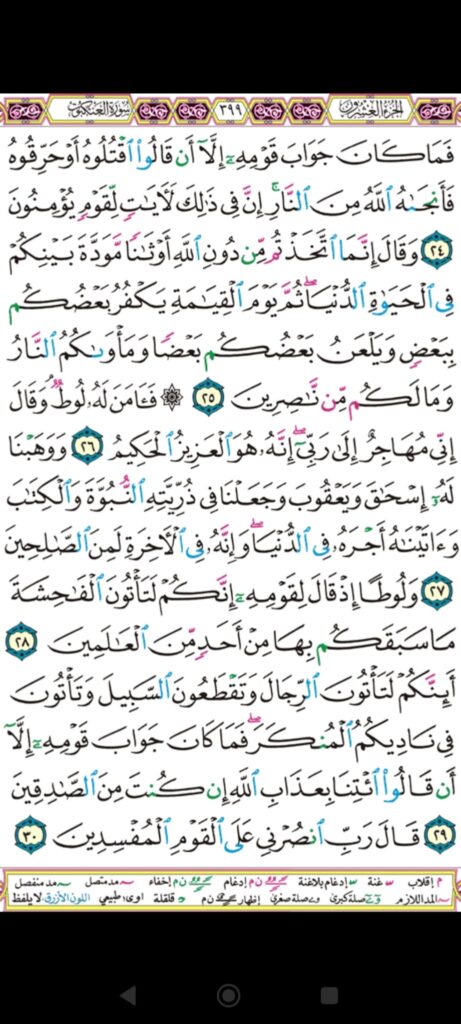 الجزء العشرون ٣٩٩ سورة العنكبوت
فَمَا كَانَ جَوَابَ قَوْمِهِۦٓ إِلَّآ أَن قَالُوا۟ ٱقْتُلُوهُ أَوْ حَرِّقُوهُ
فَأَنجَىٰهُ ٱللَّهُ مِنَ ٱلنَّارِ ۚ إِنَّ فِى ذَٰلِكَ لَـَٔايَـٰتٍ لِّقَوْمٍ يُؤْمِنُونَ
٢٤ وَقَالَ إِنَّمَا ٱتَّخَذْتُم مِّن دُونِ ٱللَّهِ أَوْثَـٰنًا مَّوَدَّةَ بَيْنِكُمْ
فِى ٱلْحَيَوٰةِ ٱلدُّنْيَا ۖ ثُمَّ يَوْمَ ٱلْقِيَـٰمَةِ يَكْفُرُ بَعْضُكُم
بِبَعْضٍ وَيَلْعَنُ بَعْضُكُم بَعْضًا وَمَأْوَىٰكُمُ ٱلنَّارُ
وَمَا لَكُم مِّن نَّـٰصِرِينَ ٢٥ ۞ فَـَٔامَنَ لَهُۥ لُوطٌ ۘ وَقَالَ
إِنِّى مُهَاجِرٌ إِلَىٰ رَبِّىٓ ۖ إِنَّهُۥ هُوَ ٱلْعَزِيزُ ٱلْحَكِيمُ ٢٦ وَوَهَبْنَا
لَهُۥٓ إِسْحَـٰقَ وَيَعْقُوبَ وَجَعَلْنَا فِى ذُرِّيَّتِهِ ٱلنُّبُوَّةَ وَٱلْكِتَـٰبَ
وَءَاتَيْنَـٰهُ أَجْرَهُۥ فِى ٱلدُّنْيَا ۖ وَإِنَّهُۥ فِى ٱلْـَٔاخِرَةِ لَمِنَ ٱلصَّـٰلِحِينَ
٢٧ وَلُوطًا إِذْ قَالَ لِقَوْمِهِۦٓ إِنَّكُمْ لَتَأْتُونَ ٱلْفَـٰحِشَةَ
مَا سَبَقَكُم بِهَا مِنْ أَحَدٍ مِّنَ ٱلْعَـٰلَمِينَ ٢٨
أَئِنَّكُمْ لَتَأْتُونَ ٱلرِّجَالَ وَتَقْطَعُونَ ٱلسَّبِيلَ وَتَأْتُونَ
فِى نَادِيكُمُ ٱلْمُنكَرَ ۖ فَمَا كَانَ جَوَابَ قَوْمِهِۦٓ إِلَّآ
أَن قَالُوا۟ ٱئْتِنَا بِعَذَابِ ٱللَّهِ إِن كُنتَ مِنَ ٱلصَّـٰدِقِينَ
٢٩ قَالَ رَبِّ ٱنصُرْنِى عَلَى ٱلْقَوْمِ ٱلْمُفْسِدِينَ ٣٠
م إقلاب غنة إدغام بلاغنة ن م إدغام ن م إخفاء مد متصل مد منفصل
المد اللازم صلة كبرى صلة صغرى إظهار ن م قلقلة اوى طبيعي اللون الأزرق لا يلفظ